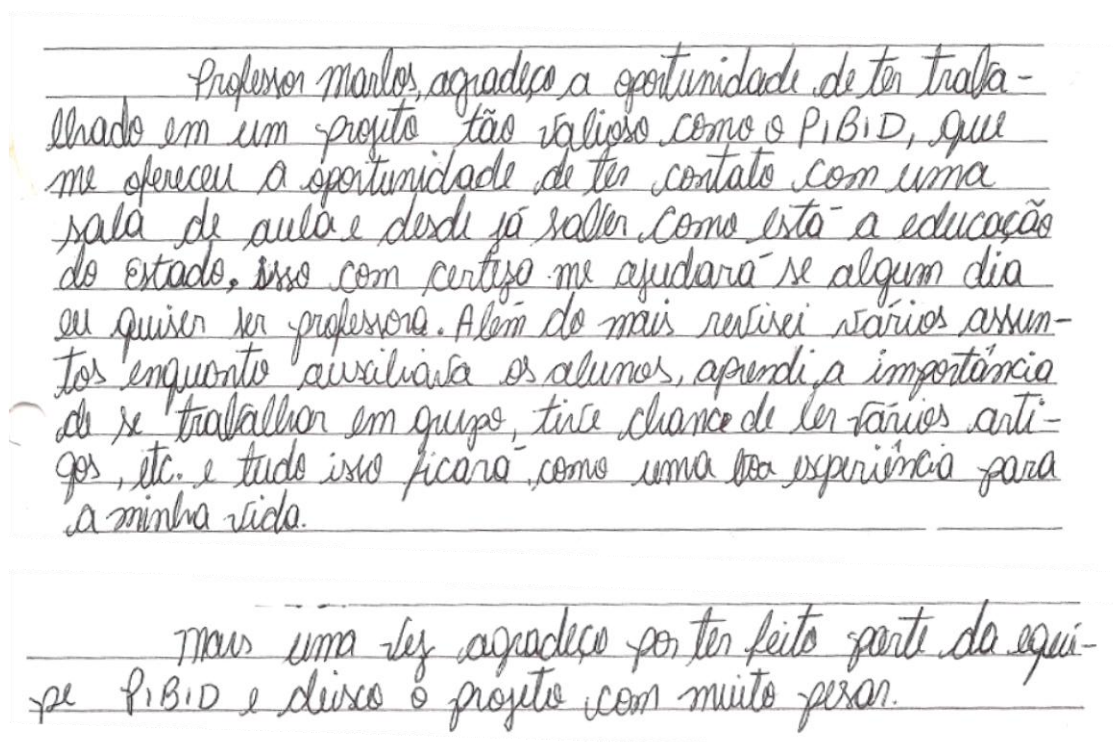 Professor Marlos, agradeço a oportunidade de ter traba-
lhado em um projeto tão valioso como o PIBID, que
me ofereceu a oportunidade de ter contato com uma
sala de aula e desde já saber como está a educação
do Estado, isso com certeza me ajudará se algum dia
eu quiser ser professora. Além do mais revisei vários assun-
tos enquanto auxiliava os alunos, aprendi a importância
de se trabalhar em grupo, tive chance de ler vários arti-
gos, etc. e tudo isso ficará como uma boa experiência para
a minha vida.
Mais uma vez agradeço por ter feito parte da equi-
pe PIBID e deixo o projeto com muito pesar.